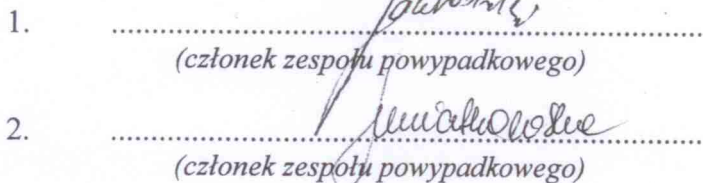 1. ..........................................................................
(członek zespołu powypadkowego)
2. ..........................................................................
(członek zespołu powypadkowego)